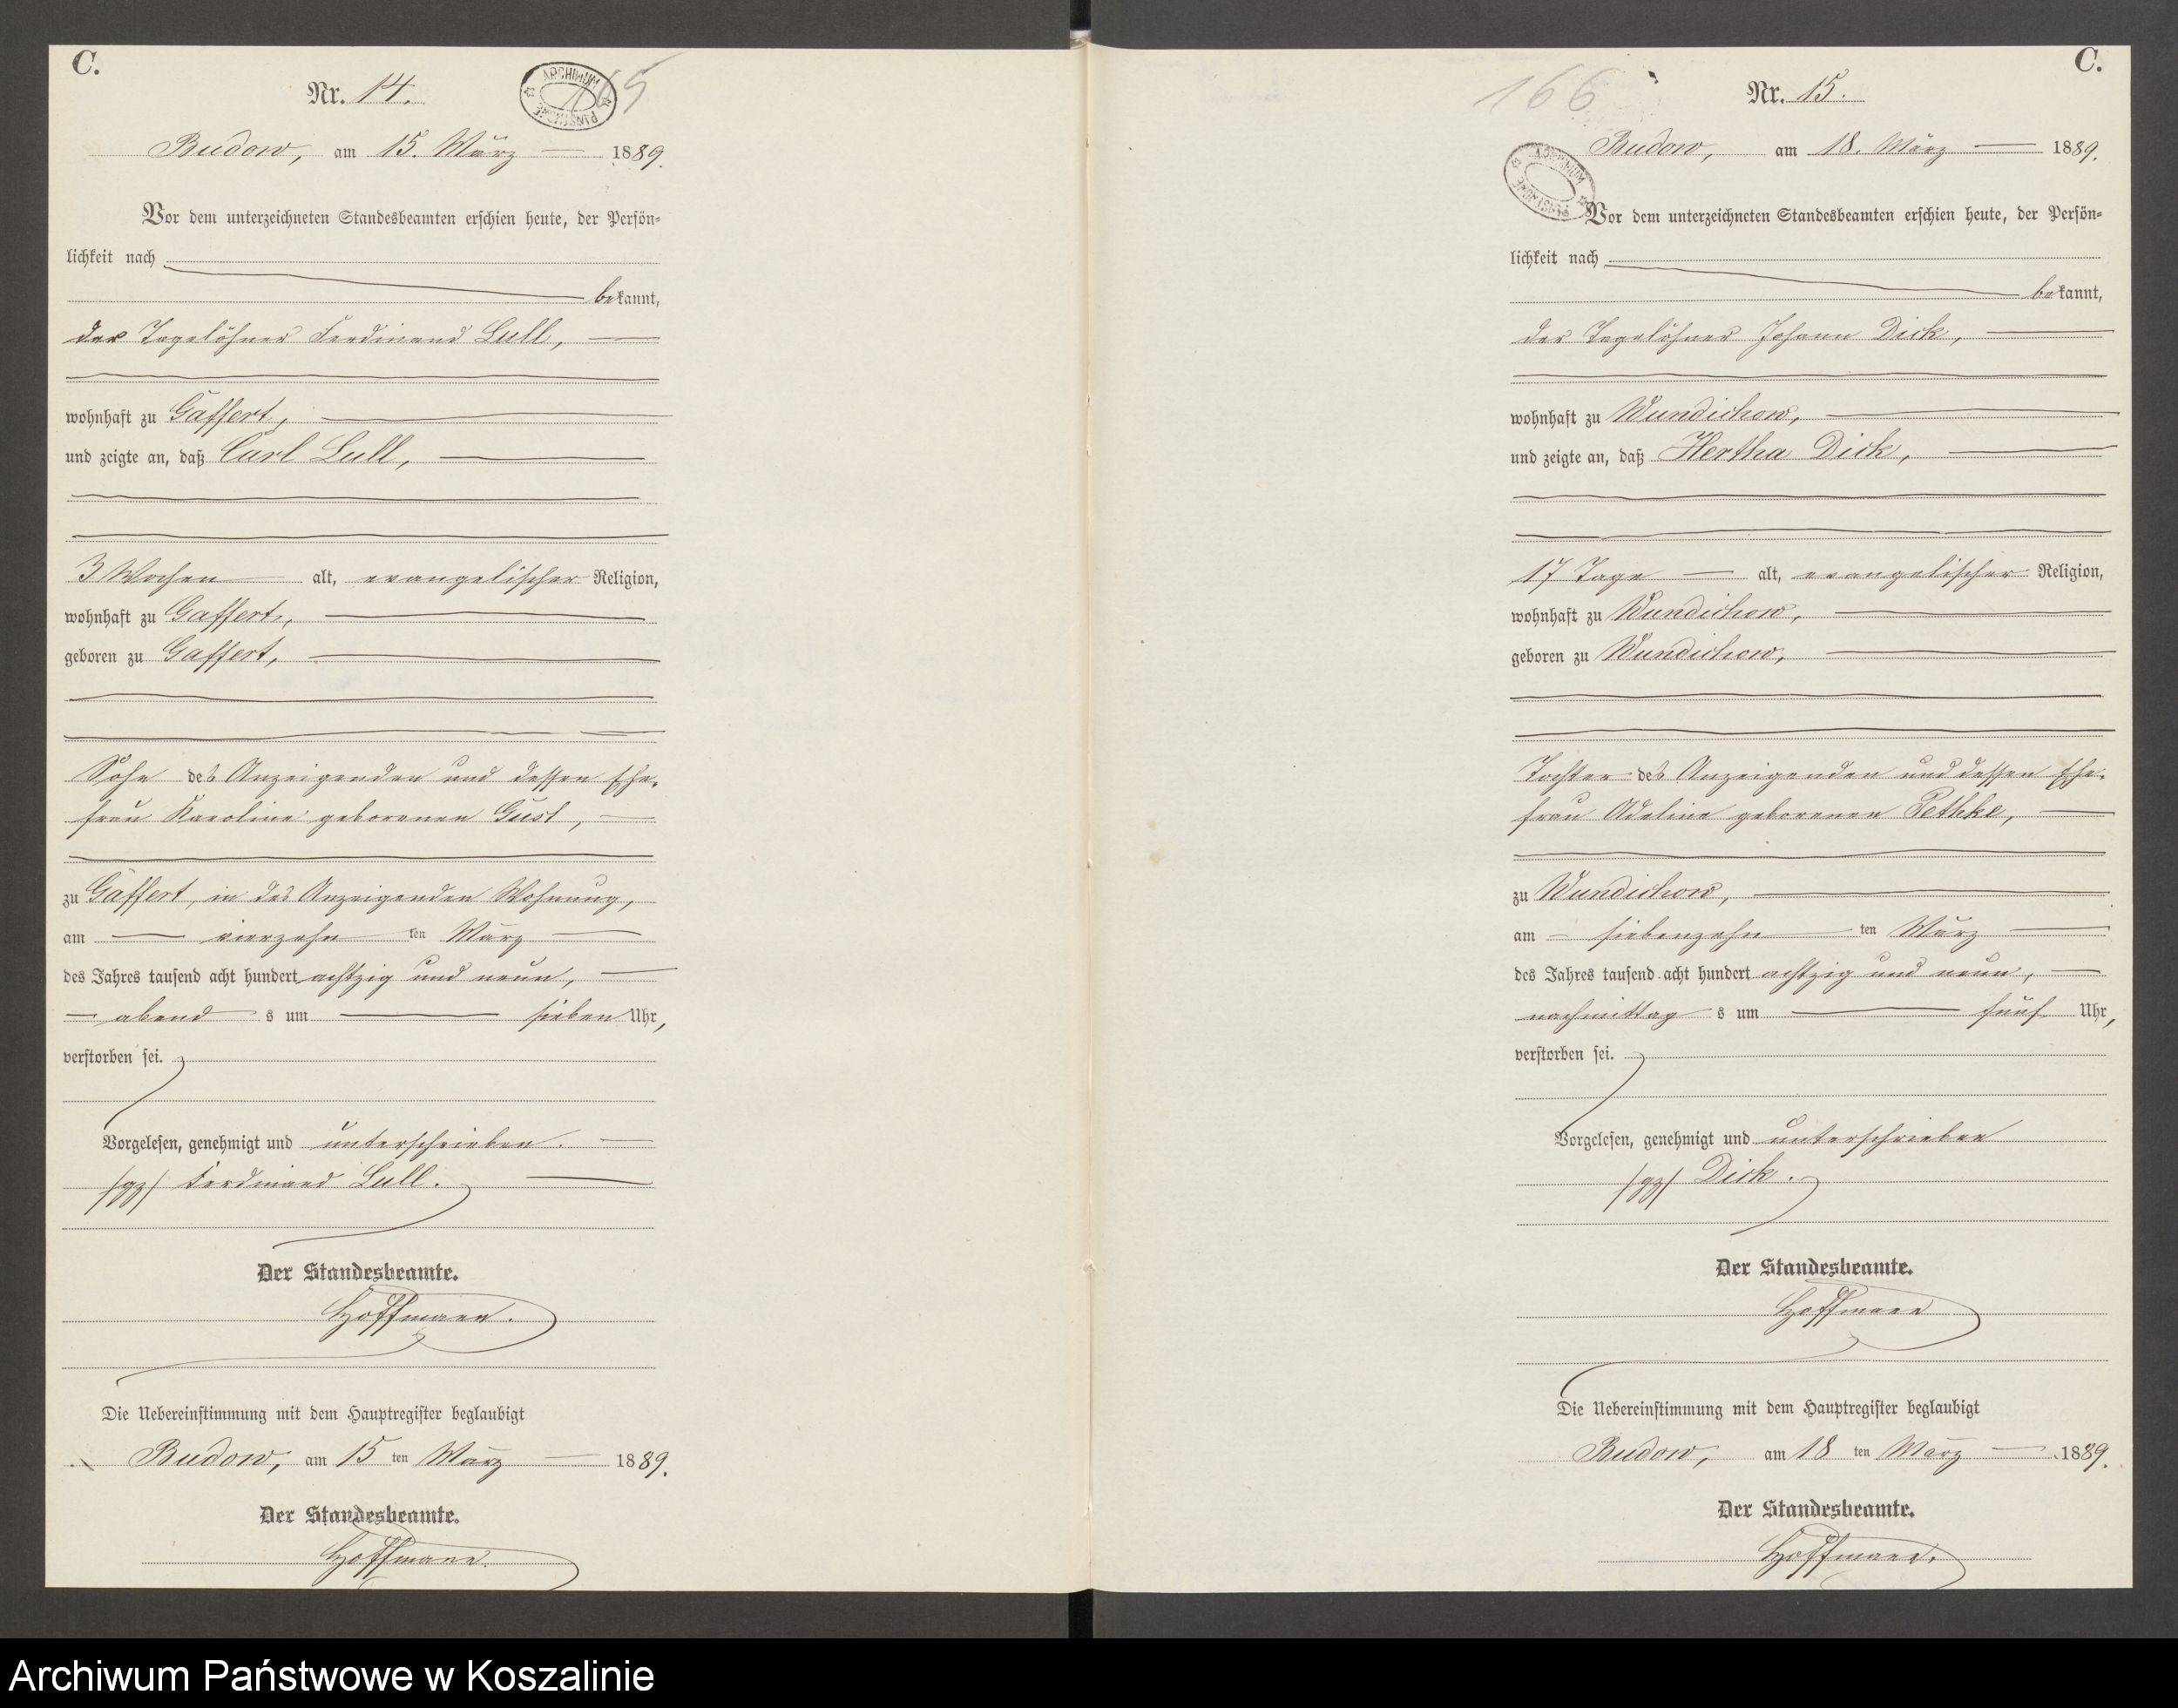 C.
Nr. 14.
165
ARCHIWUM PAŃSTWOWE
Budow, am 15. März 1889.
Vor dem unterzeichneten Standesbeamten erschien heute, der Persön=
lichkeit nach
bekannt,
der Tagelöhner Ferdinand Lull,
wohnhaft zu Gaffert,
und zeigte an, daß Carl Lull,
3 Wochen alt, evangelischer Religion,
wohnhaft zu Gaffert,
geboren zu Gaffert,
Sohn des Anzeigenden und dessen Ehe-
frau Karoline geborenen Gust,
zu Gaffert, in des Anzeigenden Wohnung,
am vierzehn ten März
des Jahres tausend acht hundert achtzig und neun,
abend s um sieben Uhr,
verstorben sei.
Vorgelesen, genehmigt und unterschrieben.
/gz/ Ferdinand Lull.
Der Standesbeamte.
Hoffmann.
Die Uebereinstimmung mit dem Hauptregister beglaubigt
Budow, am 15 ten März 1889.
Der Standesbeamte.
Hoffmann.
C.
166
Nr. 15.
ARCHIWUM PAŃSTWOWE
Budow, am 18. März 1889.
Vor dem unterzeichneten Standesbeamten erschien heute, der Persön=
lichkeit nach
bekannt,
der Tagelöhner Johann Dick,
wohnhaft zu Wundichow,
und zeigte an, daß Hertha Dick,
17 Tage alt, evangelischer Religion,
wohnhaft zu Wundichow,
geboren zu Wundichow,
Tochter des Anzeigenden und dessen Ehe-
frau Adeline geborenen Pethke,
zu Wundichow,
am siebenzehn ten März
des Jahres tausend acht hundert achtzig und neun,
nachmittag s um fünf Uhr,
verstorben sei.
Vorgelesen, genehmigt und unterschrieben
/gz/ Dick.
Der Standesbeamte.
Hoffmann
Die Uebereinstimmung mit dem Hauptregister beglaubigt
Budow, am 18 ten März 1889.
Der Standesbeamte.
Hoffmann.
Archiwum Państwowe w Koszalinie